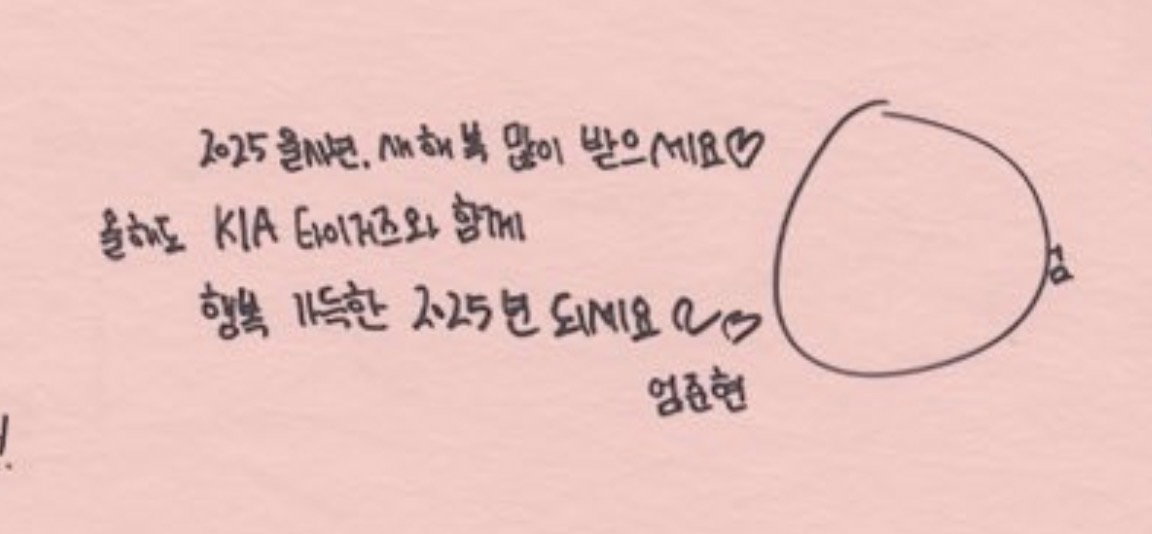 2025 을사년, 새해 복 많이 받으세요♡
올해도 KIA 타이거즈와 함께
행복 가득한 2025년 되세요 ~♡
엄준현
엄